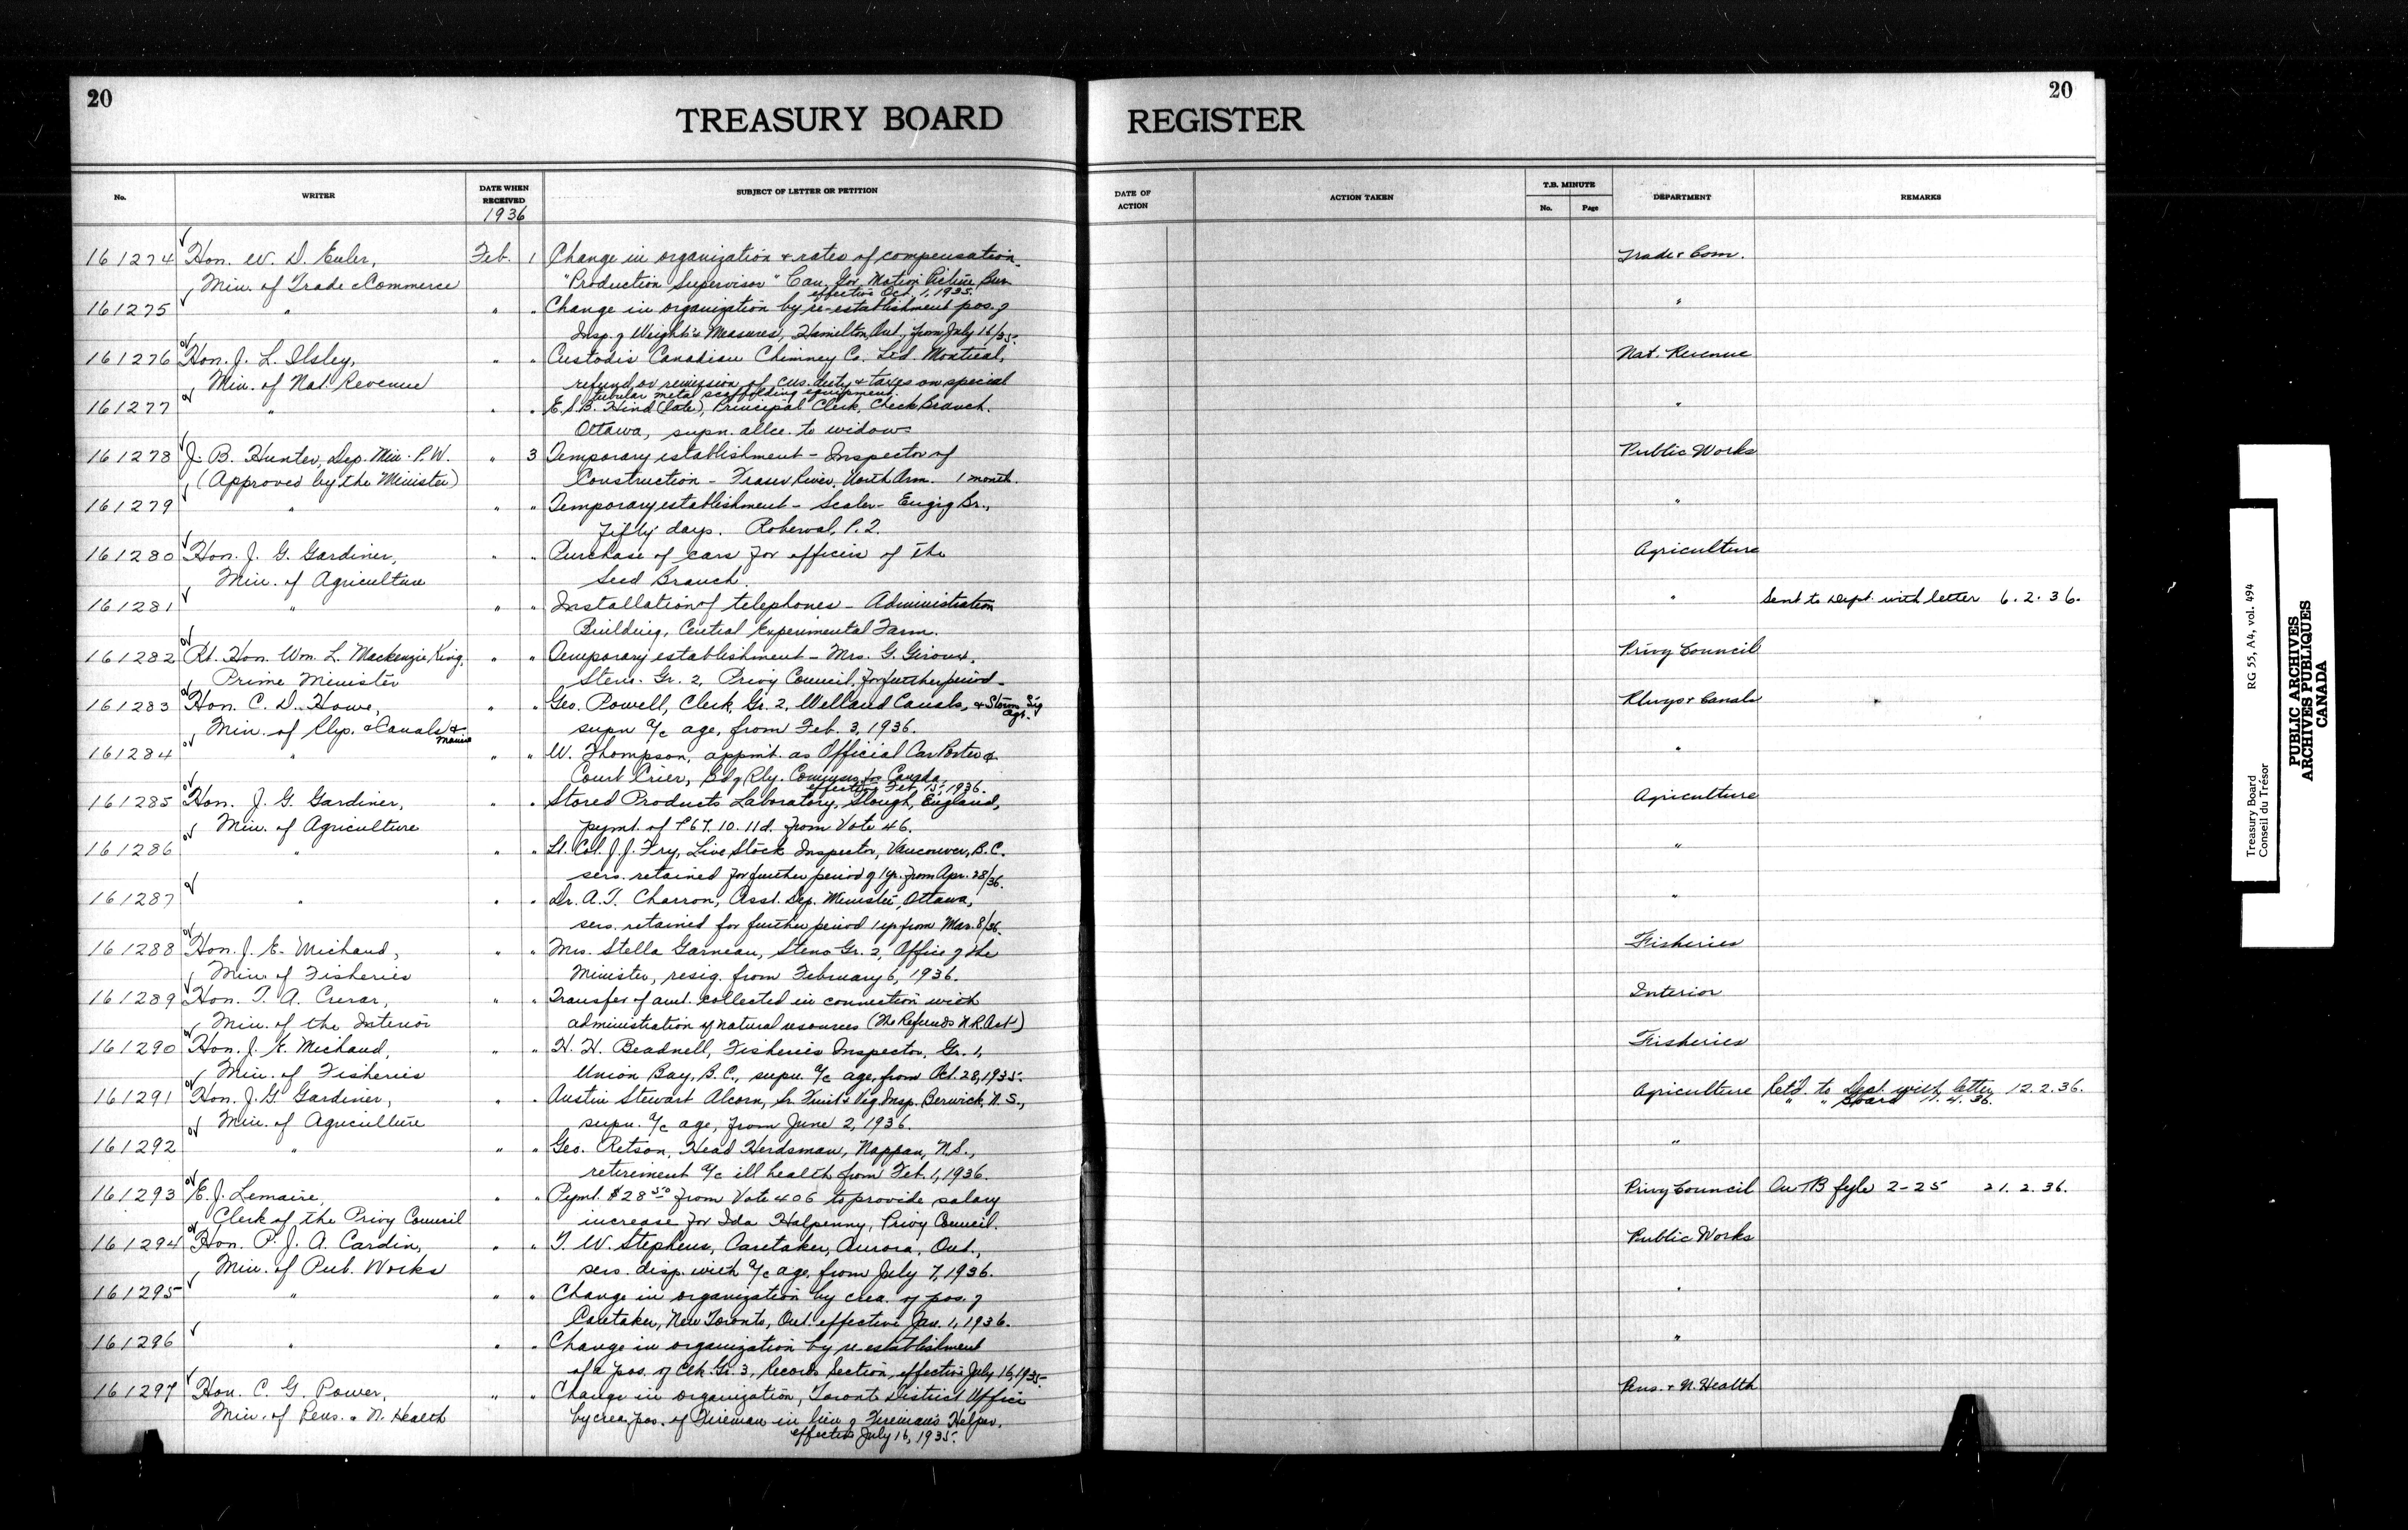 20
20
TREASURY BOARD REGISTER
No.
WRITER
DATE WHEN RECEIVED
1936
SUBJECT OF LETTER OR PETITION
DATE OF ACTION
ACTION TAKEN
T.B. MINUTE
No.
Page
DEPARTMENT
REMARKS
161274 Hon. W. D. Euler, Feb. 1 Change in organization & rates of compensation Trade & Com.
Min. of Trade & Commerce "Production Supervisor" Can. Gov. Motion Picture Bur.
effective Oct. 1, 1935.
161275 " " " Change in organization by re-establishment pos. of "
Insp. of Weights & Measures, Hamilton, Ont., from July 16/35.
161276 Hon. J. L. Ilsley, " " Custodis Canadian Chimney Co. Ltd. Montreal, Nat. Revenue
Min. of Nat. Revenue refund or remission of cus. duty & taxes on special
tubular metal scaffolding equipment.
161277 " " " E. S. B. Hind (late), Principal Clerk, Check Branch. "
Ottawa, supn. allce. to widow
161278 J. B. Hunter, Dep. Min. P. W. " 3 Temporary establishment - Inspector of Public Works
(Approved by the Minister) Construction - Fraser River, North Arm. 1 month.
161279 " " " Temporary establishment - Scaler - Engrg Br., "
Fifty days. Roberval, P.Q.
161280 Hon. J. G. Gardiner, " " Purchase of cars for officers of the Agriculture
Min. of Agriculture Seed Branch.
161281 " " " Installation of telephones - Administration " Sent to Dept. with letter 6.2.36.
Building, Central Experimental Farm.
161282 Rt. Hon. Wm. L. Mackenzie King, " " Temporary establishment - Mrs. G. Giroux, Privy Council
Prime Minister Steno. Gr. 2, Privy Council, for further period
161283 Hon. C. D. Howe, " " Geo. Powell, Clerk, Gr. 2, Welland Canals, & Storm Sig. Agt. Rlwys & Canals
Min. of Rlys. & Canals & Marine supn a/c age, from Feb. 3, 1936.
161284 " " " W. Thompson, appmt. as Official Car Porter & "
Court Crier, Bd of Rly. Commrs for Canada,
effective Feb. 15, 1936.
161285 Hon. J. G. Gardiner, " " Stored Products Laboratory, Slough, England, Agriculture
Min. of Agriculture pymt. of £67.10.11d. from Vote 46.
161286 " " " Lt. Col. J. J. Fry, Live Stock Inspector, Vancouver, B.C. "
sers. retained for further period of 1 yr. from Apr. 28/36.
161287 " " " Dr. A. T. Charron, Asst. Dep. Minister, Ottawa, "
sers. retained for further period 1 yr from Mar. 8/36.
161288 Hon. J. E. Michaud, " " Mrs. Stella Garneau, Steno Gr. 2, Office of the Fisheries
Min. of Fisheries Minister, resig. from February 6, 1936.
161289 Hon. T. A. Crerar, " " Transfer of amt. collected in connection with Interior
Min. of the Interior administration of natural resources (The Refunds N.R. Act)
161290 Hon. J. E. Michaud, " " H. H. Beadnell, Fisheries Inspector, Gr. 1, Fisheries
Min. of Fisheries Union Bay, B.C., supn. a/c age, from Oct. 28, 1935.
161291 Hon. J. G. Gardiner, " " Austin Stewart Alcorn, Sr. Fruit & Veg. Insp. Berwick, N.S., Agriculture Retd. to Dept. with letter 12.2.36.
" " Board 11.4.36.
Min. of Agriculture supn. a/c age, from June 2, 1936.
161292 " " " Geo. Retson, Head Herdsman, Nappan, N.S., "
retirement a/c ill health from Feb. 1, 1936.
161293 E. J. Lemaire, " " Pymt. $28.50 from Vote 406 to provide salary Privy Council On TB fyle 2-25 21.2.36.
Clerk of the Privy Council increase for Ida Halpenny, Privy Council.
161294 Hon. P. J. A. Cardin, " " T. W. Stephens, Caretaker, Aurora, Ont., Public Works
Min. of Pub. Works sers. disp. with a/c age, from July 7, 1936.
161295 " " " Change in organization by crea. of pos. of "
Caretaker, New Toronto, Ont. effective Jan. 1, 1936.
161296 " " " Change in organization by re-establishment "
of a pos. of Clk. Gr. 3, Records Section, effective July 16, 1935.
161297 Hon. C. G. Power, " " Change in organization, Toronto District Office Pens. & N. Health
Min. of Pens. & N. Health by crea. pos. of Fireman in lieu of Fireman's Helper,
effective July 16, 1935.
Treasury Board RG 55, A4, vol. 494
Conseil du Trésor
PUBLIC ARCHIVES
ARCHIVES PUBLIQUES
CANADA